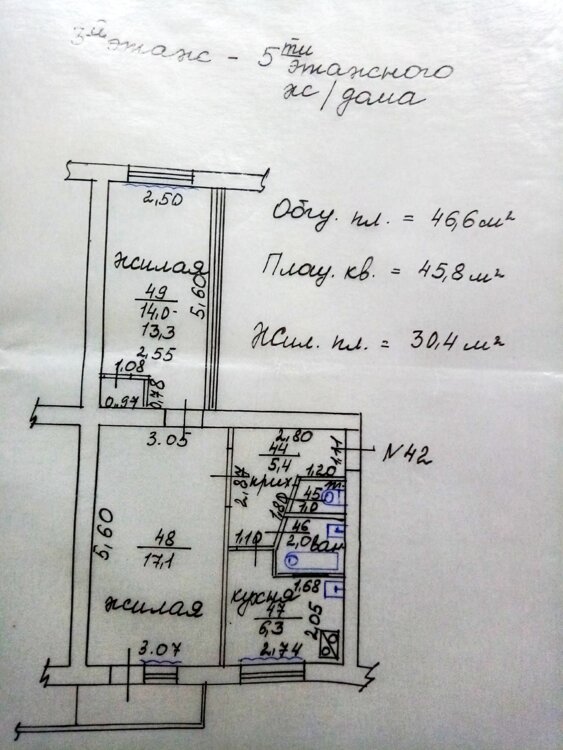 3й этаж - 5ти
этажного
ж/дома
Общ. пл. = 46,6 м²
Площ. кв. = 45,8 м²
Жил. пл. = 30,4 м²
2,50
жилая
49
14,0-
13,3
5,60
2,55
1,08
0,97
0,78
3.05
2,80
44
5,4
1,11
N42
прих
2,87
1,20
45
т.
1,80
1,0
46
2,0
ван
1,10
5,60
48
17,1
жилая
3.07
1,68
кухня
47
6,3
2,05
2,74